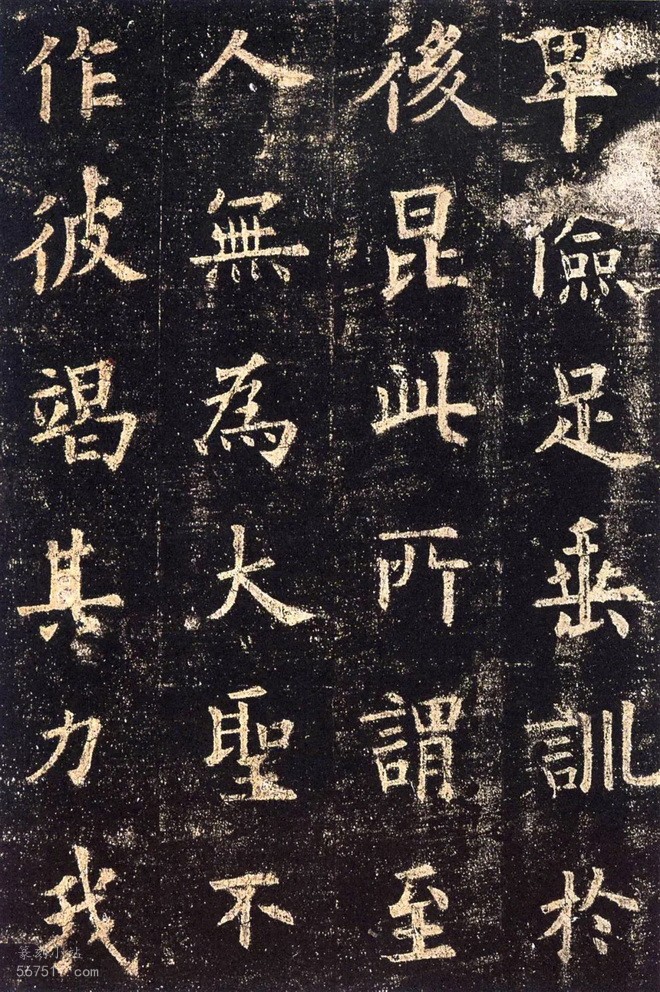 卑儉足垂訓於
後昆此所謂至
人無為大聖不
作彼竭其力我
篆刻小站